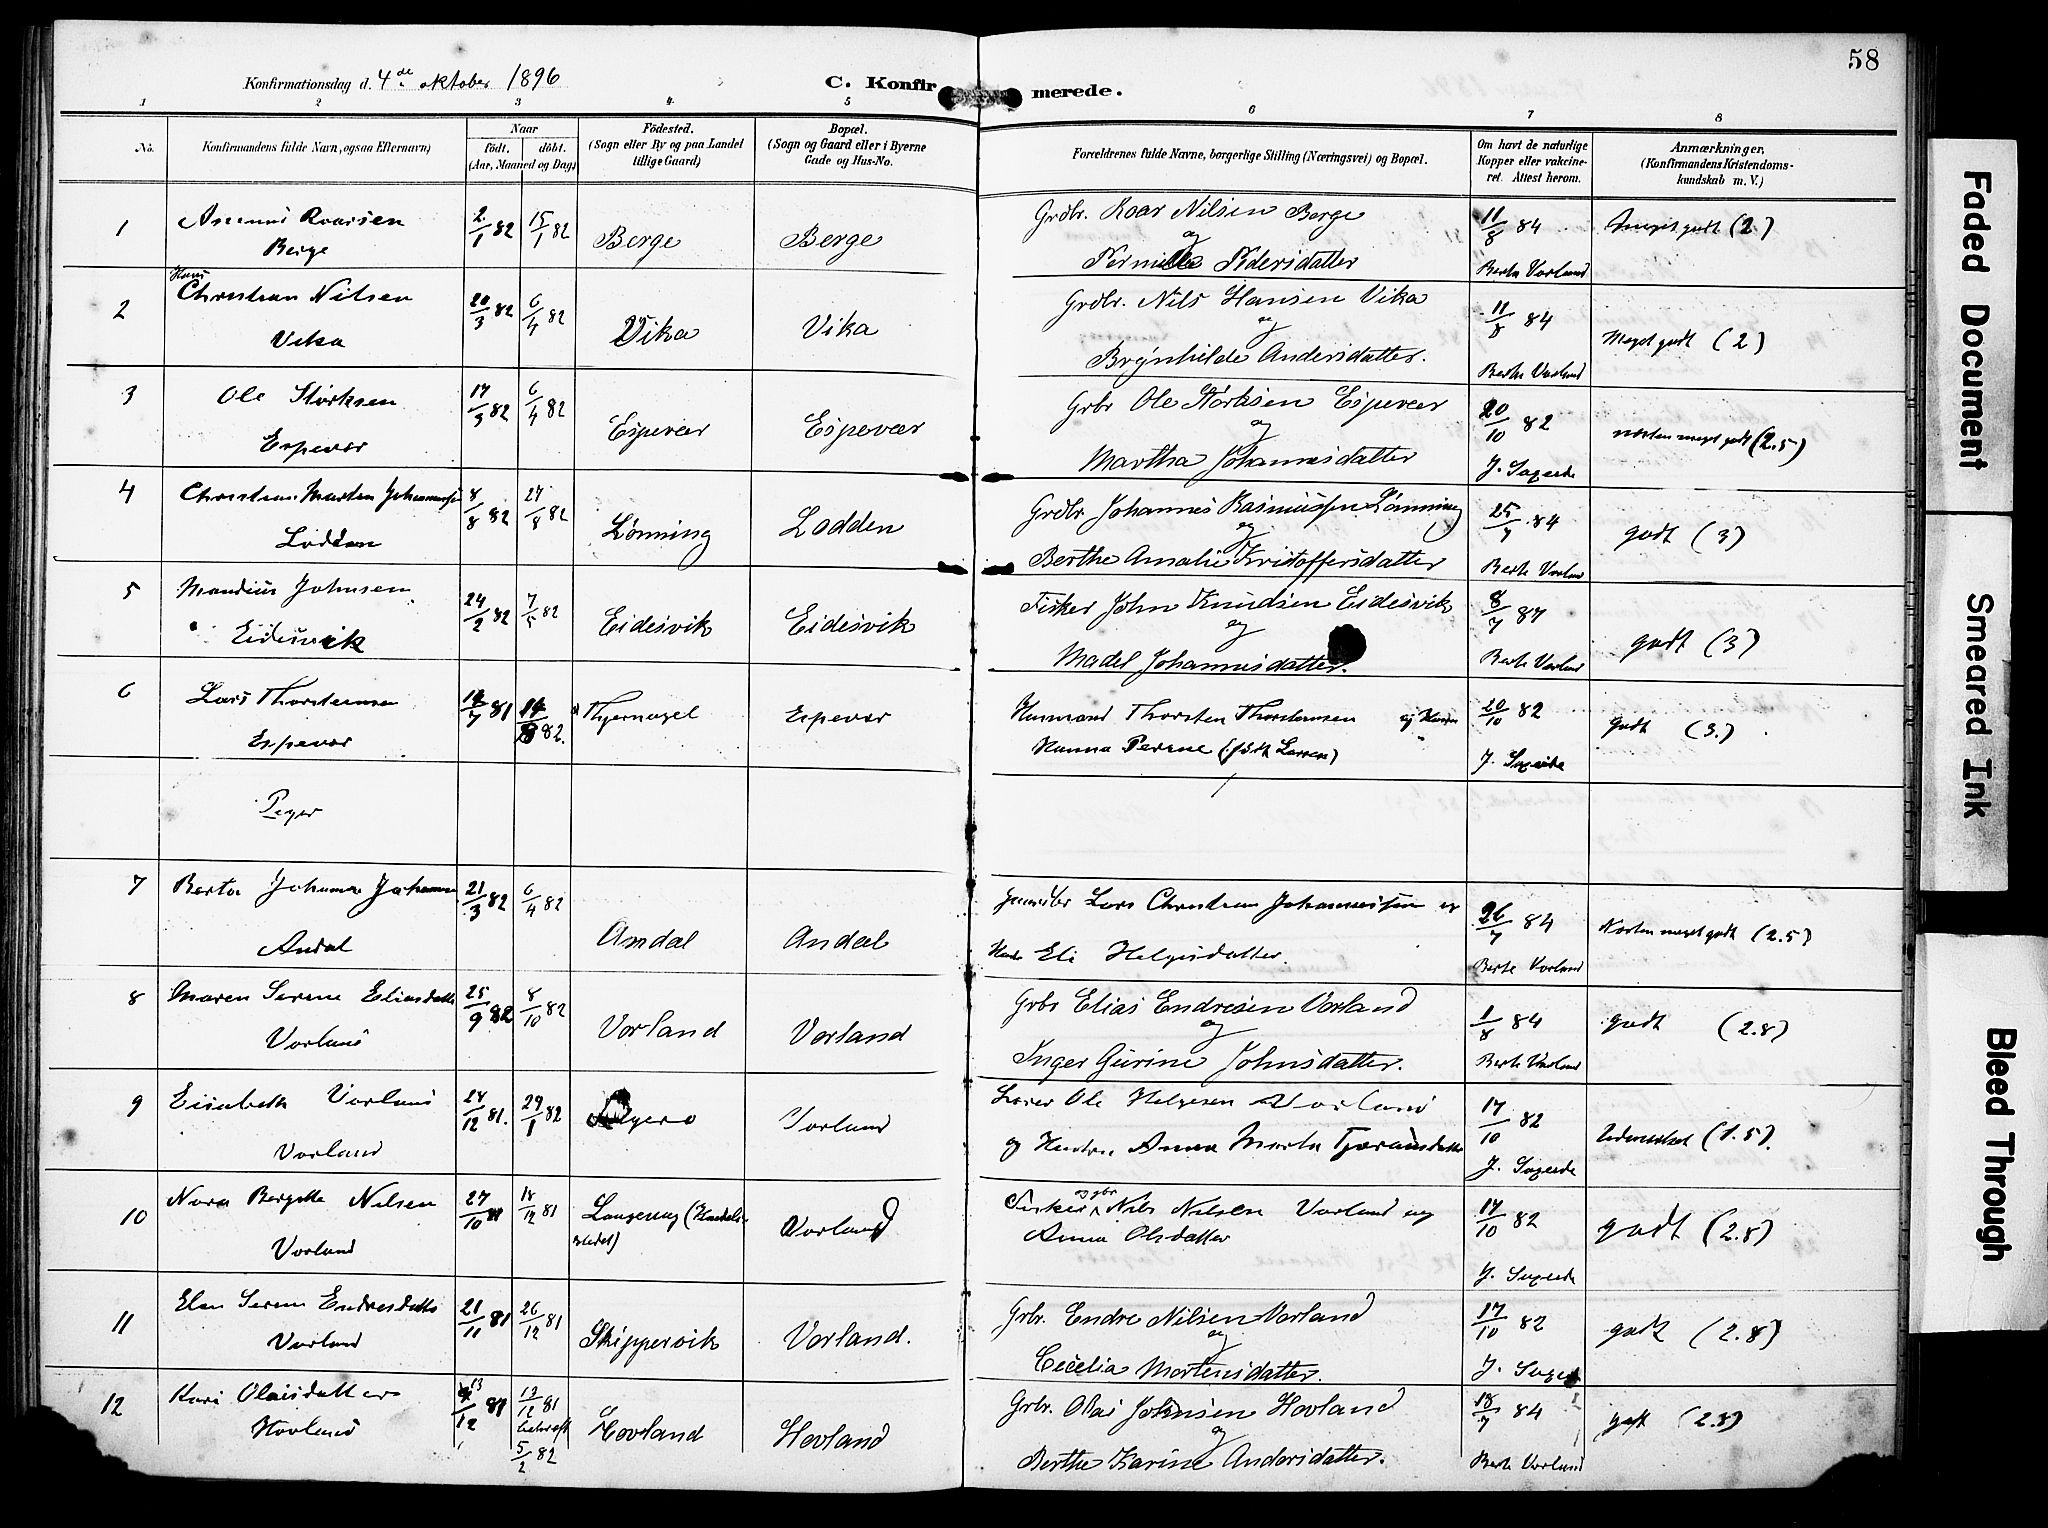 58
Konfirmationsdag d. 4de oktober 1896
C. Konfirmerede.
1 2 3 4 5 6 7 8
No.
Konfirmandens fulde Navn, ogsaa Efternavn)
Naar
födt. döbt.
(Aar, Maaned og Dag)
Födested.
(Sogn eller By og paa Landet
tillige Gaard)
Bopæl.
(Sogn og Gaard eller i Byerne
Gade og Hus-No.
Forældrenes fulde Navne, borgerlige Stilling (Næringsvei) og Bopæl.
Om havt de naturlige
Kopper eller vakcine-
ret. Attest herom.
Anmærkninger,
(Konfirmandens Kristendoms-
kundskab m. V.)
1 Roarsen 2/1 82 15/1 82 Berge Berge Grdbr. Roar Nilsen Berge 11/8 84 Meget godt (2)
Berge og Pedersdatter Berta Vorland
2 Hans Christian Nilsen 20/3 82 6/4 82 Vika Vika Grdbr. Nils Hansen Vika 11/8 84 Meget godt (2)
Vika og Brynhilde Andersdatter. Berta Vorland
3 Ole Størksen 17/3 82 6/4 82 Espevær Espevær Grbr Ole Størksen Espevær 20/10 82 næsten meget godt (2.5)
Espevær og Martha Johannesdatter
4 Christian Martin Johannesen 8/8 82 27/8 82 Lønning Lodden Grdbr Johannes Rasmussen Lønning 25/7 84 godt (3)
Lodden og Berthe Amalie Kristoffersdatter Berte Vorland
5 Johnsen 24/2 82 7/5 82 Eidesvik Eidesvik Fisker John Knudsen Eidesvik 8/7 87 godt (3)
Eidesvik og Madel Johannesdatter. Berte Vorland
6 Lars Thorstensen 81 82. Espevær Husmand Thorsten Thorstensen og Hustru 20/10 82 Godt (3.)
Espevær Hanna Perene (født Larsen)
Peger
7 Berta Johanna 21/3 82 6/4 82 Andal Andal Lars Christian Johannessen og 26/7 84 Næsten meget godt (2.5)
Andal Eli Helgesdatter. Berte Vorland
8 Maren Serene Eliasdatter 25/9 82 8/10 82 Vorland Vorland Grbr Elias Endresen Vorland 1/8 84 godt (2.8)
Vorland og Inger Gurine Johnsdatter. Berte Vorland
9 Elisabeth Vorland 12 81. 29/1 82 Vorland Lærer Ole Helgesen Vorland 17/10 82 (1.5).
Vorland og Hustru Anna Marta
10 Nora Bergitte Nilsen 27/10 81 18/12 81 Vorland Fisker og gbr Nils Nilsen Vorland og 17/10 82 godt (2.8)
Vorland Anna Olsdatter
11 Elen Serene Endresdatter 21/11 81 26/12 81 Skippervik Vorland. Grbr. Endre Nilsen Vorland 17/10 82 godt (2.8)
Vorland og Cecelia Mortensdatter.
12 Kari Olaisdatter 12 81 12 81 5/2 82 Hovland Hovland Grbr. Olai Johnsen Hovland 18/7 84 godt (2.8)
Hovland og Berthe Karine Andersdatter. Berte Vorland
Faded Document
Smeared Ink
Bleed Through